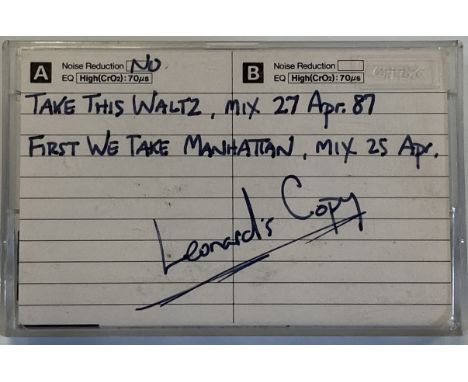 A Noise Reduction NO B Noise Reduction
EQ High(CrO2):70µs EQ High(CrO2):70µs
TAKE THIS WALTZ, MIX 27 Apr. 87
FIRST WE TAKE MANHATTAN, MIX 25 Apr.
Leonard's Copy